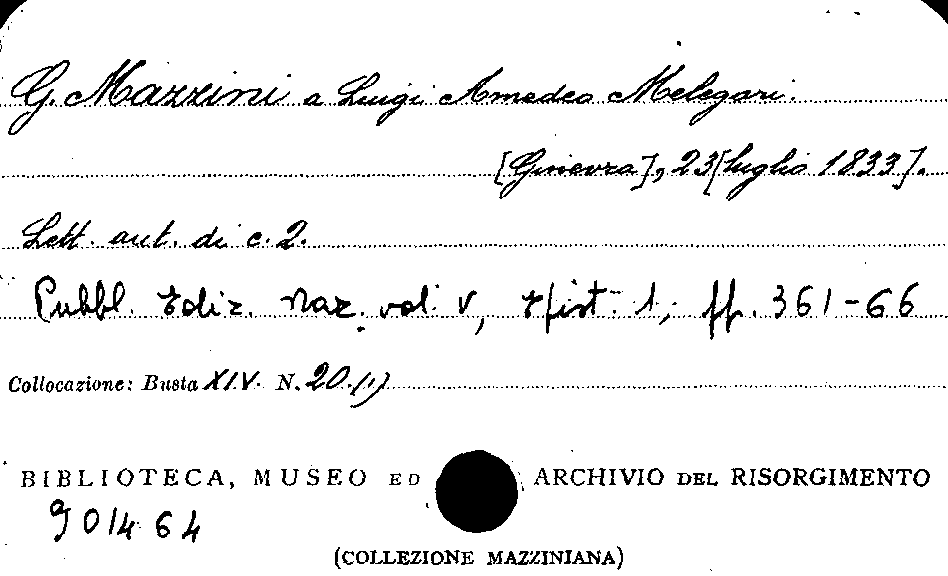 G. Mazzini a Luigi Amedeo Melegari.
[Ginevra], 23 [luglio 1833].
Lett. aut. di c. 2.
Pubbl. Ediz. Naz. vol. V, Epist. 1, pp. 361-66
Collocazione: Busta XIV. N. 20.(1)
BIBLIOTECA, MUSEO ED ARCHIVIO DEL RISORGIMENTO
901464
(COLLEZIONE MAZZINIANA)